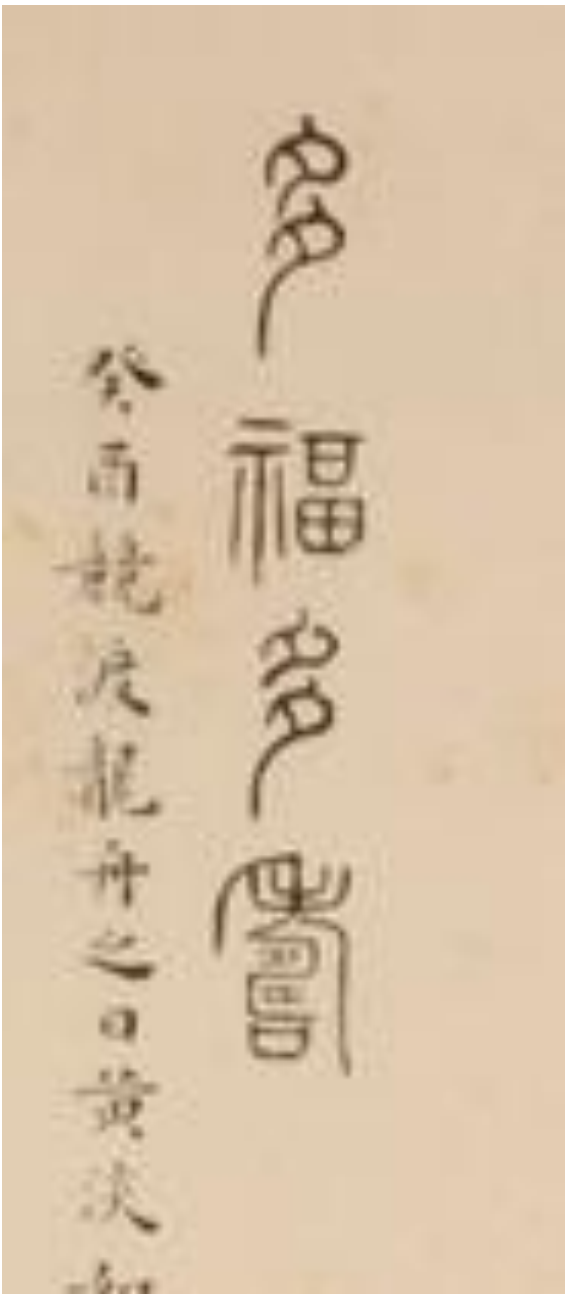 多福多壽
癸酉競渡龍舟之日黄